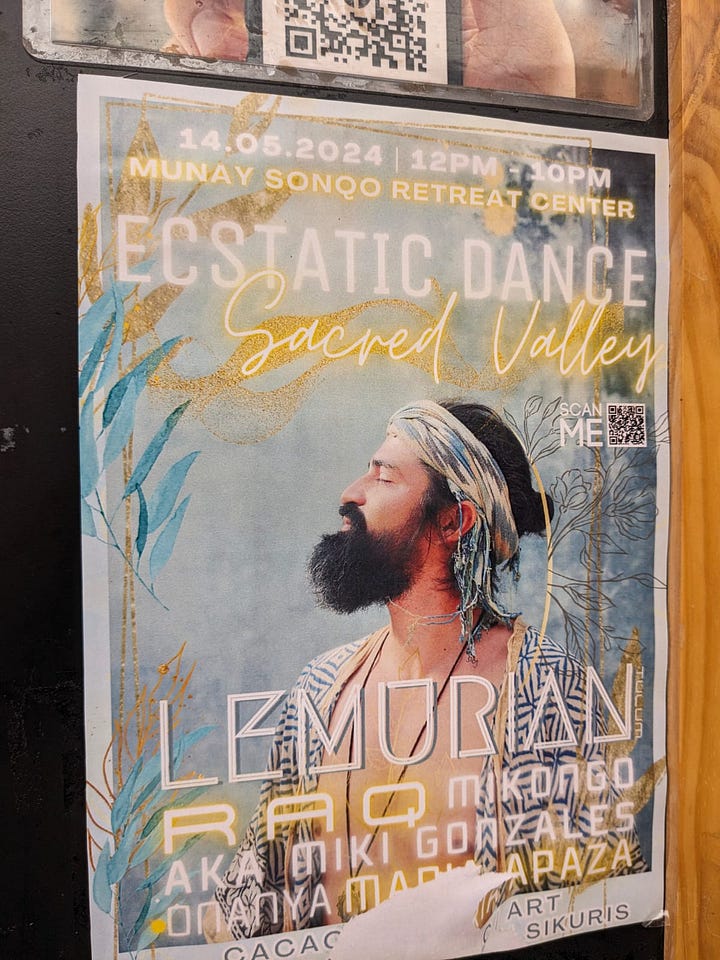 14.05.2024 | 12PM - 10PM
MUNAY SONQO RETREAT CENTER
ECSTATIC DANCE
Sacred Valley
SCAN
ME
LEMURIAN
TULUM
RAQ MIKONGO
AKA MIKI GONZALES
APAZA
ART
CACAO SIKURIS